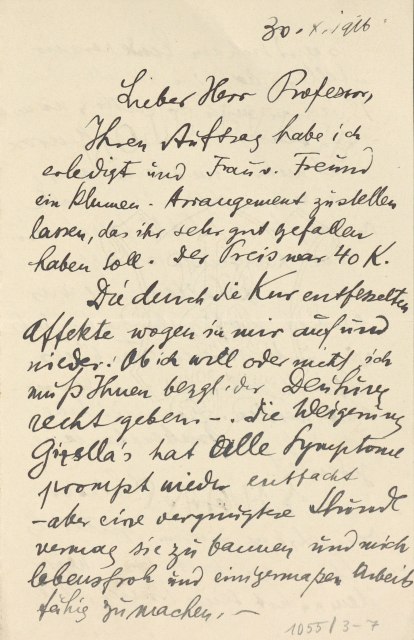 30. X. 1916.
Lieber Herr Professor,
Ihren Auftrag habe ich
erledigt und Frau v. Freund
ein Blumen-Arrangement zustellen
lassen, das ihr sehr gut gefallen
haben soll. Der Preis war 40 K.
Die durch die Kur entfesselten
Affekte wogen in mir auf und
nieder. Ob ich will oder nicht ich
muß Ihnen bezgl. der Deutung
recht geben –. Die Weigerung
Gizella's hat alle Symptome
prompt wieder entfacht
– aber eine vergnügtere Stunde
vermag sie zu bannen und mich
lebensfroh und einigermaßen Arbeits
fähig zu machen. –
1055/3-7